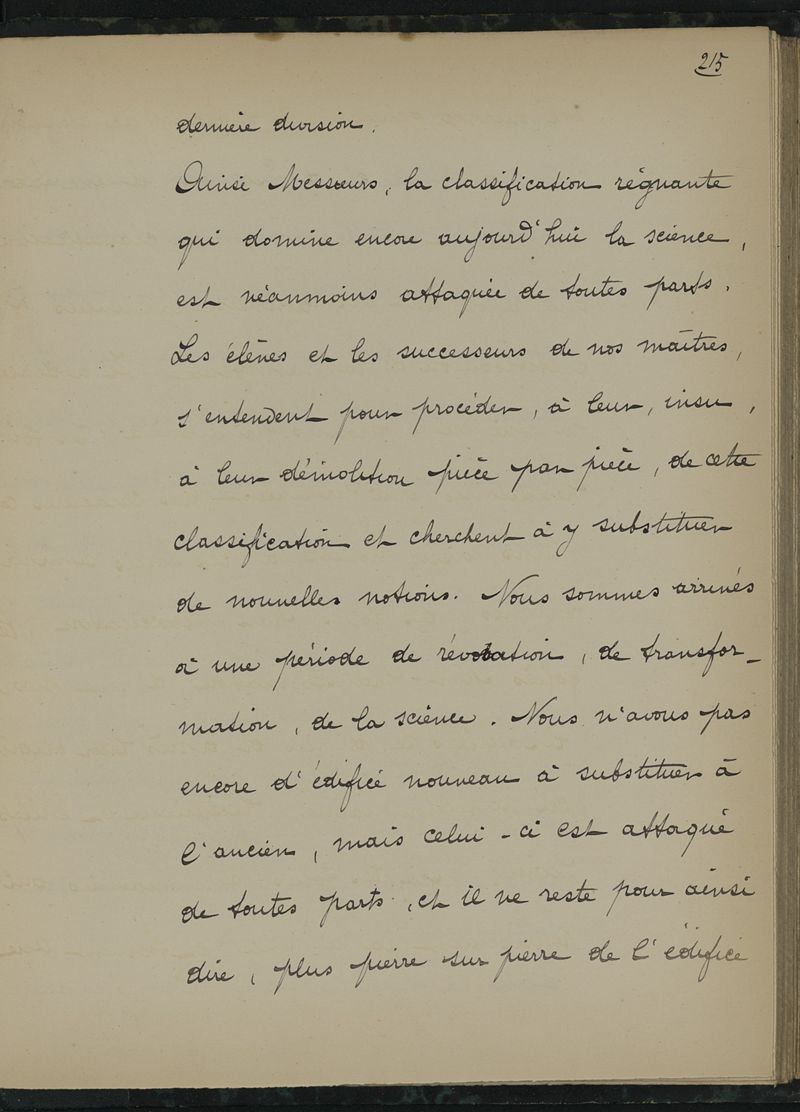 215
dernière division.
Ainsi Messieurs, la classification régnante
qui domine encore aujourd'hui la science,
est néanmoins attaquée de toutes parts.
Les élèves et les successeurs de nos maîtres,
s'entendent pour procéder, à leur, insu,
à leur démolition pièce par pièce, de cette
classification et cherchent à y substituer
de nouvelles notions. Nous sommes arrivés
à une période de, de transfor-
mation, de la science. Nous n'avons pas
encore d'édifice nouveau à substituer à
l'ancien, mais celui-ci est attaqué
de toutes parts, et il ne reste pour ainsi
dire, plus pierre sur pierre de l'édifice